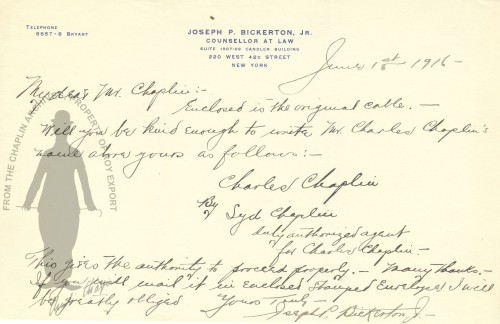 TELEPHONE
6557-8 BRYANT
JOSEPH P. BICKERTON, JR.
COUNSELLOR AT LAW
SUITE 1507-09 CANDLER BUILDING
220 WEST 42D STREET
NEW YORK
June 1st 1916-
My dear Mr. Chaplin:-
Enclosed is the original cable.-
Will you be kind enough to write Mr. Charles Chaplin's
name above yours as follows:-
Charles Chaplin
By Syd Chaplin
duly authorized agent
for Charles Chaplin-
This gives the authority to proceed properly.- Many thanks.-
If you will mail it in enclosed stamped envelope I will
be greatly obliged
Yours Truly-
Joseph P. Bickerton Jr-
FROM THE CHAPLIN ARCHIVES PROPERTY OF ROY EXPORT